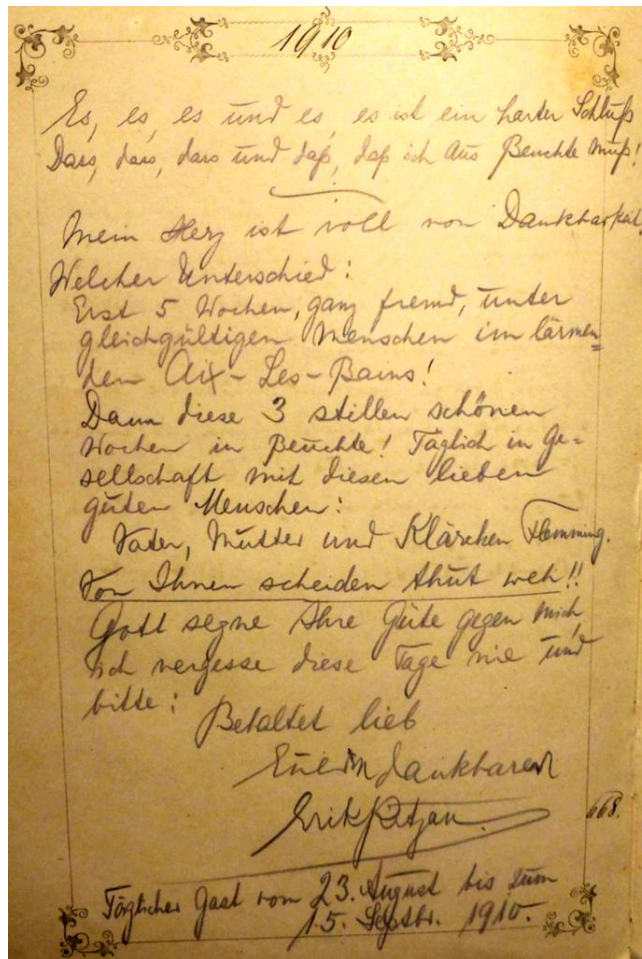 1910
Es, es, es und es, es ist ein harter Schluß
Dass, dass, dass und daß, daß ich aus Beuchte muß!
Mein Herz ist voll von Dankbarkeit.
Welcher Unterschied:
Erst 5 Wochen, ganz fremd, unter
gleichgültigen Menschen im lärmen=
den Aix-Les-Bains!
Dann diese 3 stillen schönen
Wochen in Beuchte! Täglich in Ge=
sellschaft mit diesen lieben
guten Menschen:
Vater, Mutter und Klärchen Flemming.
Von Ihnen scheiden thut weh!!
Gott segne Ihre Güte gegen mich
ich vergesse diese Tage nie und
bitte:
Behaltet lieb
Euern dankbaren
Erik
668.
Täglicher Gast vom 23. August bis zum
15. Septbr. 1910.